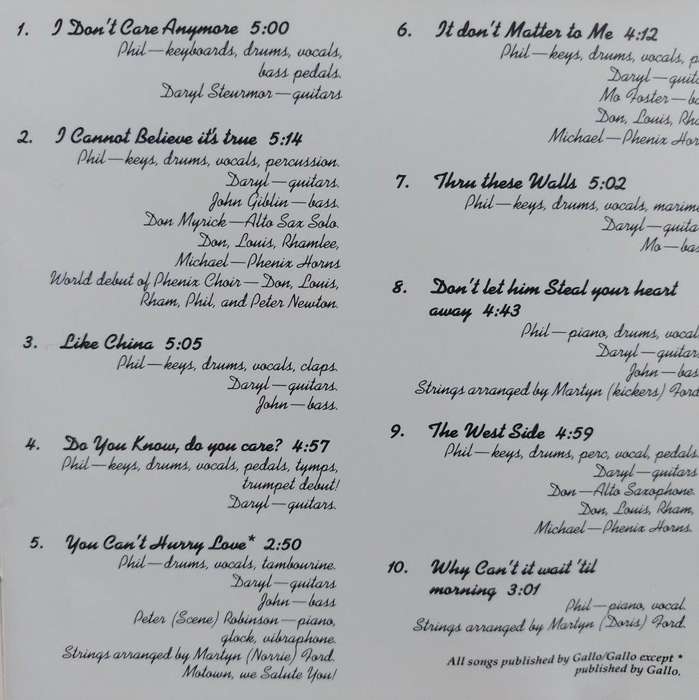 1. I Don't Care Anymore 5:00
Phil—keyboards, drums, vocals,
bass pedals.
Daryl Steurmor—guitars
2. I Cannot Believe it's true 5:14
Phil—keys, drums, vocals, percussion.
Daryl—guitars.
John Giblin—bass.
Don Myrick—Alto Sax Solo.
Don, Louis, Rhamlee,
Michael—Phenix Horns
World debut of Phenix Choir—Don, Louis,
Rham, Phil, and Peter Newton.
3. Like China 5:05
Phil—keys, drums, vocals, claps.
Daryl—guitars.
John—bass.
4. Do You Know, do you care? 4:57
Phil—keys, drums, vocals, pedals, tymps,
trumpet debut!
Daryl—guitars.
5. You Can't Hurry Love* 2:50
Phil—drums, vocals, tambourine.
Daryl—guitars
John—bass
Peter (Scene) Robinson—piano,
glock, vibraphone.
Strings arranged by Martyn (Norrie) Ford.
Motown, we Salute You!
6. It don't Matter to Me 4:12
Phil—keys, drums, vocals, p
Daryl—guita
Mo Foster—ba
Don, Louis, Rha
Michael—Phenix Hor
7. Thru these Walls 5:02
Phil—keys, drums, vocals, marim
Daryl—guita
Mo—bas
8. Don't let him Steal your heart
away 4:43
Phil—piano, drums, vocal
Daryl—guitar
John—bas
Strings arranged by Martyn (kickers) Ford
9. The West Side 4:59
Phil—keys, drums, perc, vocal, pedals.
Daryl—guitars
Don—Alto Saxophone.
Don, Louis, Rham,
Michael—Phenix Horns.
10. Why Can't it wait 'til
morning 3:01
Phil—piano, vocal.
Strings arranged by Martyn (Doris) Ford.
All songs published by Gallo/Gallo except *
published by Gallo.